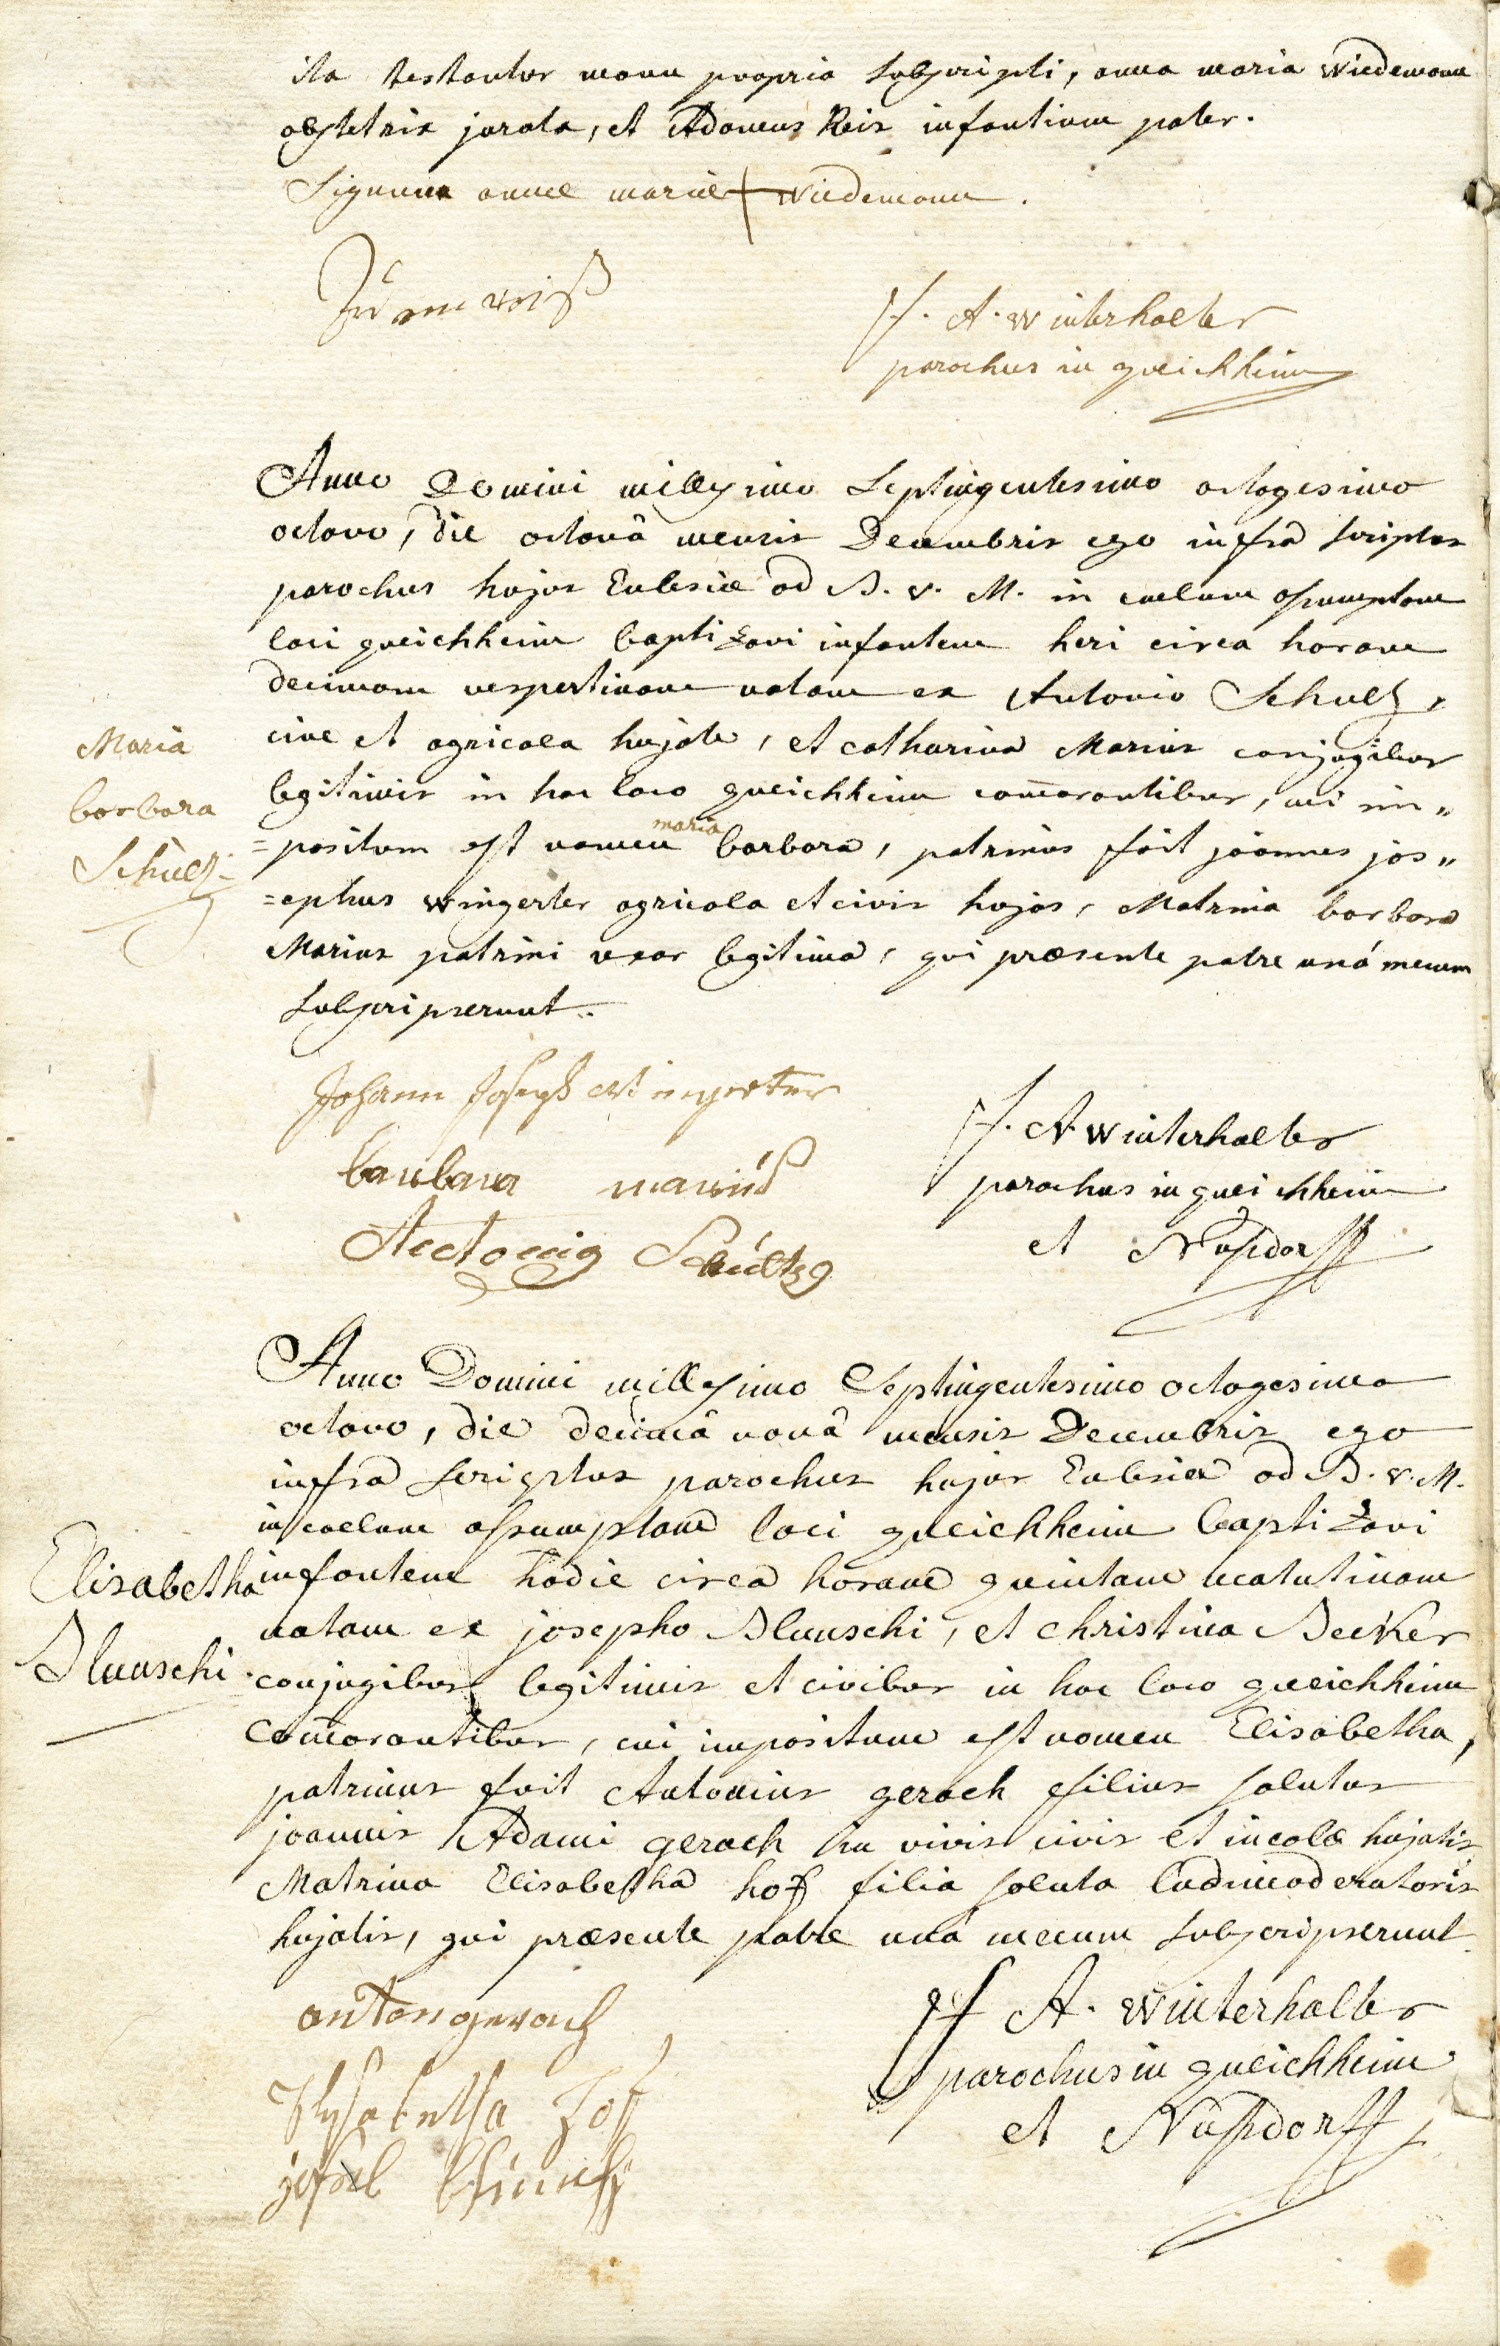 ita testantur manu propria subscripti, anna maria Wiedemann
obstetrix jurata, et Adamus Reis infantium pater.
Signum annae mariae + Wiedemann.
F. A. Winterhalter
parochus in queichheim
Anno Domini millesimo Septingentesimo octogesimo
octavo, die octavâ mensis Decembris ego infra scriptus
parochus hujus Eclesiae ad B. v. M. in caelum assumptam
loci queichheim baptizavi infantem heri circa horam
decimam vespertinam natam ex Antonio Schultz,
cive et agricola hujate, et catharina Marius conjugibus
legitimis in hoc loco queichheim com̄orantibus, cui im„
=positum est nomen maria barbara, patrinus fuit joannes jos„
=ephus wingerter agricola et civis hujas, Matrina barbara
Marius patrini uxor legitima, qui praesente patre unà mecum
subscripserunt.
Maria
barbara
Schultz
Johann Joseph Wingerter
barbara mariuß
Antonig Schultz
F. A Winterhalter
parochus in queichheim
et Nußdorff
Anno Domini millesimo Septingentesimo octogesimo
octavo, die decimâ nonâ mensis Decembris ego
infra scriptus parochus hujus Eclesiae ad B. v. M.
in caelum assumptam loci queichheim baptizavi
infantem hodie circa horam quintam matutinam
natam ex josepho Blunschi, et christina Becker
conjugibus legitimis et civibus in hoc loco queichheim
com̄orantibus, cui impositum est nomen Elisabetha,
patrinus fuit Antonius gerach filius solutus
joannis Adami gerach in vivis civis et incolae hujatis
Matrina Elisabetha hoff filia soluta ludimoderatoris
hujatis, qui praesente patre unà mecum subscripserunt
Elisabetha
Blunschi
anton gerach
F A. Winterhalter
parochus in queichheim
et Nußdorff